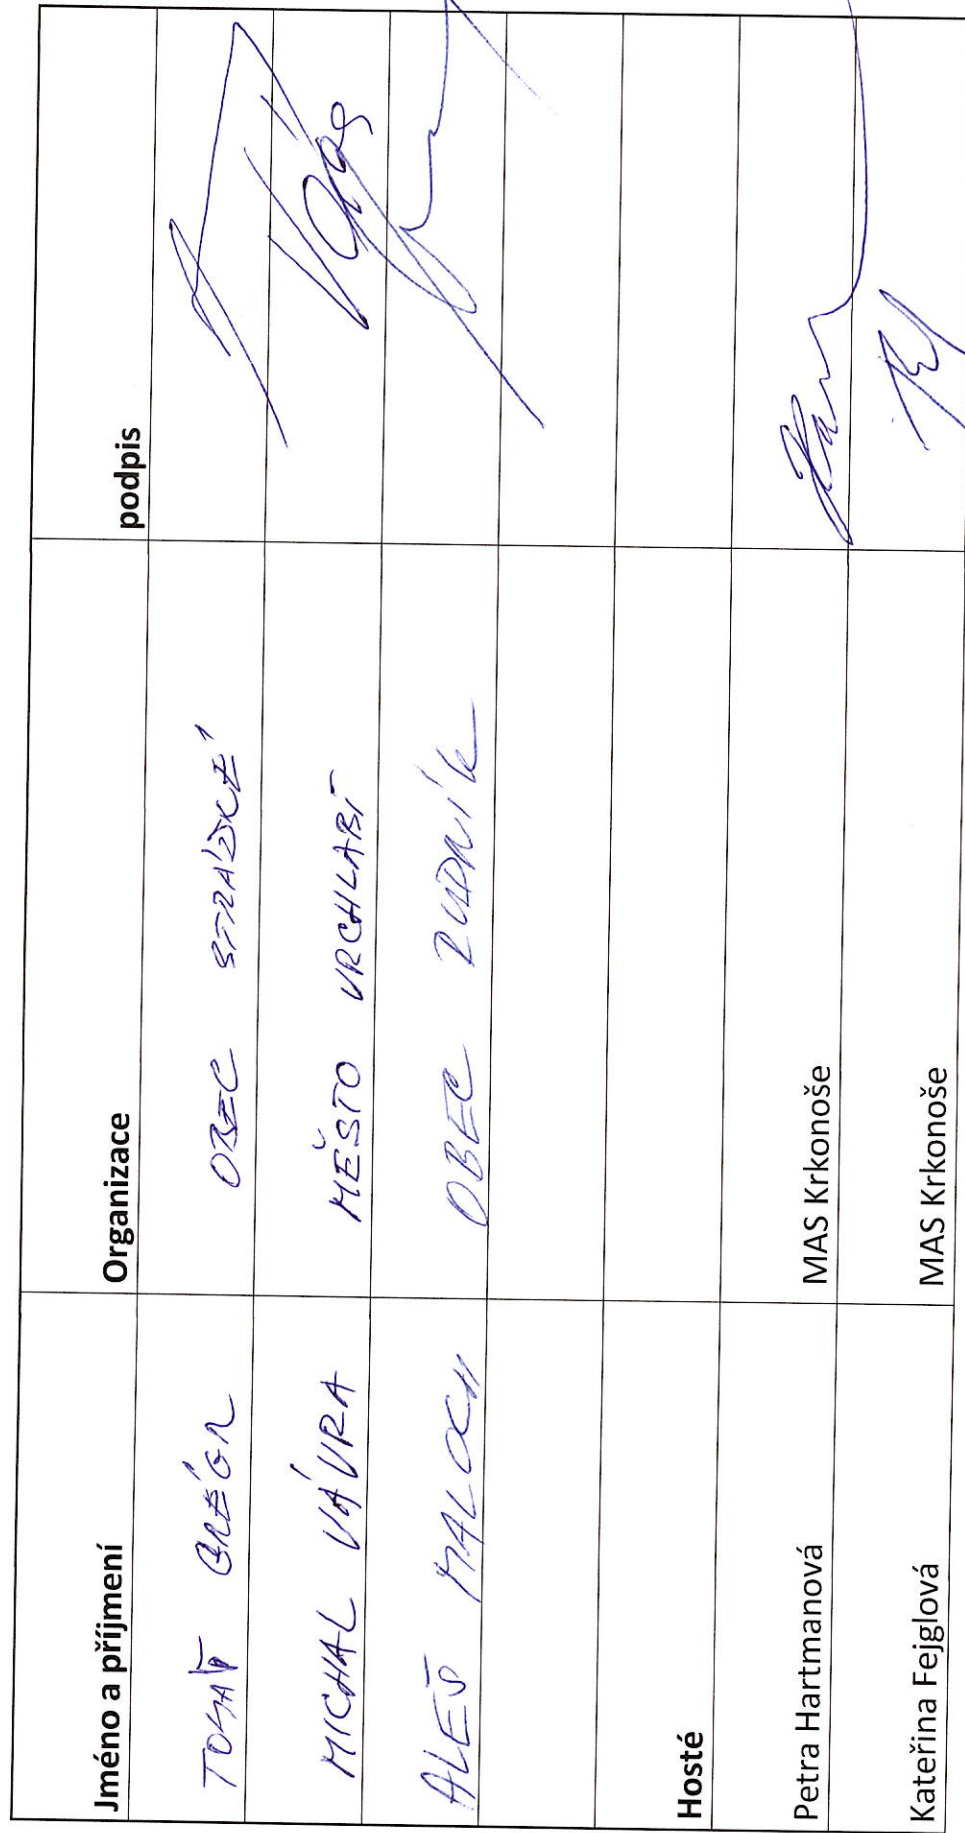 Jméno a příjmení Organizace podpis
TOMÁŠ GRÉGR OBEC STRÁŽNÉ
MICHAL VÁVRA MĚSTO VRCHLABÍ
ALEŠ MALOCH OBEC RUDNÍK
Hosté
Petra Hartmanová MAS Krkonoše
Kateřina Fejglová MAS Krkonoše